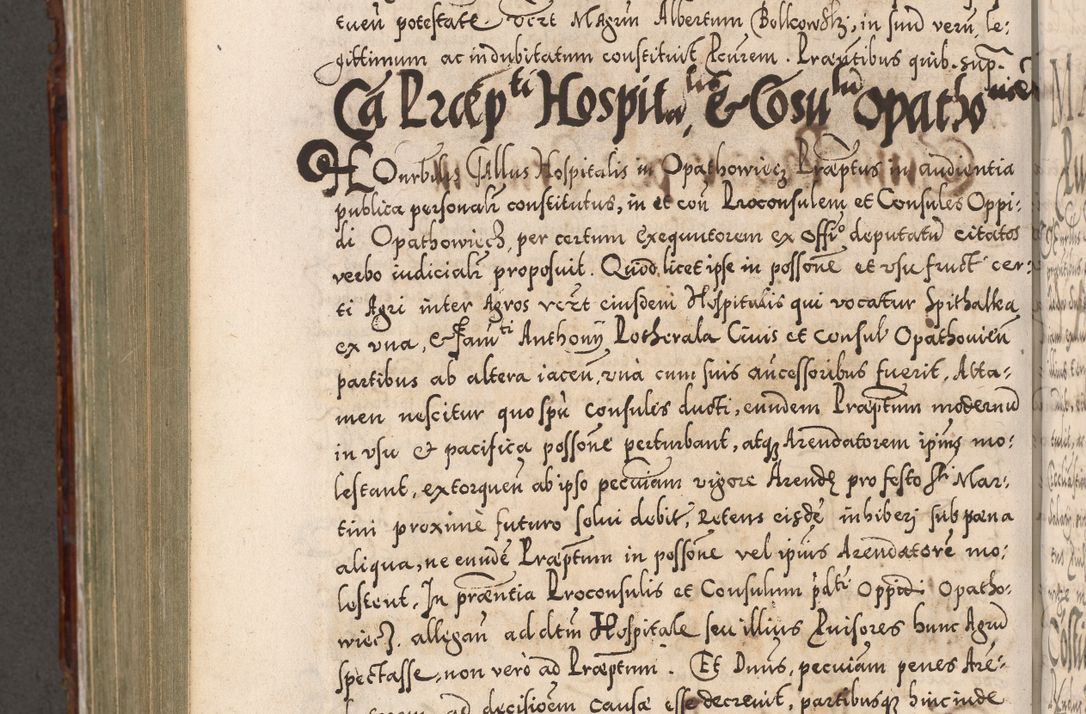 tuen potestate. Vert Magrum Albertum Bolkowskj, in suum verum, le:
gittimum ac indubitatum constituit Pcurem. Præntibus quib. sup.
Ca Præpti Hospitalis, & Cosulum Opathouicen
HOnrbilis Gallus Hospitalis in Opathowiecz Præptus in audientia
publica personalr constitutus, in et con Proconsulem et Consules Oppi:
di Opathowiecz, per certum Exequutorem ex Offio deputatum citatos
verbo iudicialr proposuit. Quod, licet ipse in possone et usu fruct cer:
ti Agri inter Agros eiusdem Hospitalis qui vocatur Spithalka
ex una, & Famti Anthonij Potherala Ciuis et Consul Opathouien
partibus ab altera iacen, una cum suis aucessoribus fuerit, Atta:
men nescitur quo spu Consules ducti, eundem Præptum modernum
in usu & pacifica possone perturbant, atq Arendatorem ipius mo:
lestant, extorquen ab ipso pecuiam vigore Arendæ pro festo S. Mar:
tini proxime futuro solui debit, Petens eisde inhiberj sub pæna
aliqua, ne eunde Præptum in possone vel ipius Arendatore mo:
lestent. In præntia Proconsulis et Consulum pdti Oppidi Opatho:
wiecz. allegan ad dtm Hospitale seu illius Puisores hunc Agrum
spectasse, non vero ad Præptum. Et Dnus, pecuiam penes Are:
ad decisioem causæ esse decreuit, partibusq hincinde